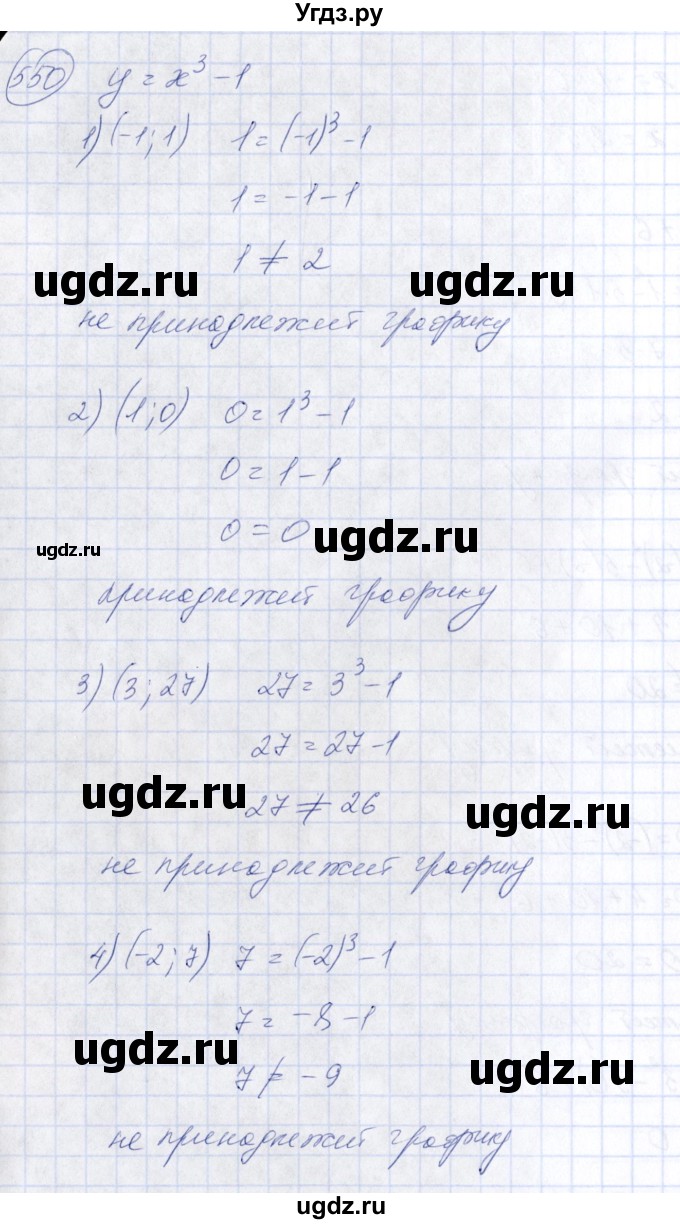 Угдз.ру
550 y = x³ - 1
1) (-1; 1) 1 = (-1)³ - 1
1 = -1 - 1
1 ≠ 2
ugdz.ru ugdz.ru
не принадлежит графику
2) (1; 0) 0 = 1³ - 1
0 = 1 - 1
0 = 0
ugdz.ru ugdz.ru
принадлежит графику
3) (3; 27) 27 = 3³ - 1
27 = 27 - 1
ugdz.ru
27 ≠ 26
ugdz.ru
не принадлежит графику
4) (-2; 7) 7 = (-2)³ - 1
7 = -8 - 1
ugdz.ru
7 ≠ -9
ugdz.ru
не принадлежит графику
ugdz.ru